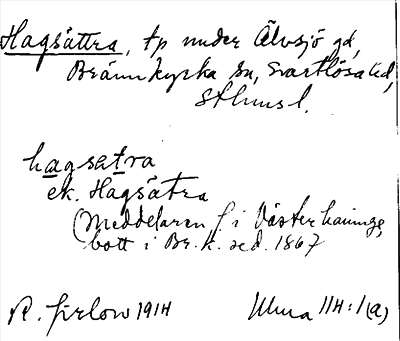 Hagsättra, tp under Älvsjö gd,
Brännkyrka sn, Svartlösa hd,
Sthms l.
hagsatra
ek. Hagsätra
(Meddelaren f. i Västerhaninge,
bott i Br.k. sed. 1867
R. 1914 Ulma 114:1(a)